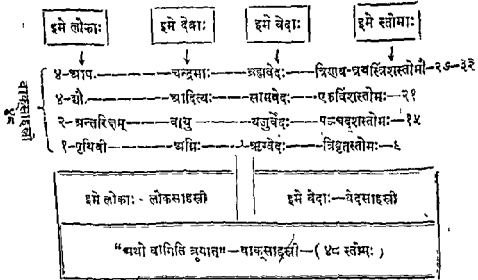 इमे लोकाः इमे देवाः इमे वेदाः इमे स्तोमाः
४-आपः-----चन्द्रमाः-----ब्रह्मवेदः---त्रिणव-त्रयस्त्रिंशस्तोमौ-२७-३३
४-द्यौः-----आदित्यः-----सामवेदः----एकविंशस्तोमः-२१
२-अन्तरिक्षम्-----वायुः-----यजुर्वेदः----पञ्चदशस्तोमः-१५
१-पृथिवी-----अग्निः-----ऋग्वेदः----त्रिवृत्स्तोमः-९
वाक्साहस्री
४८
इमे लोकाः-लोकसाहस्री इमे वेदाः-वेदसाहस्री
"अथो वागिति ब्रूयात्"-वाक्साहस्री-(४८ स्तोमाः)